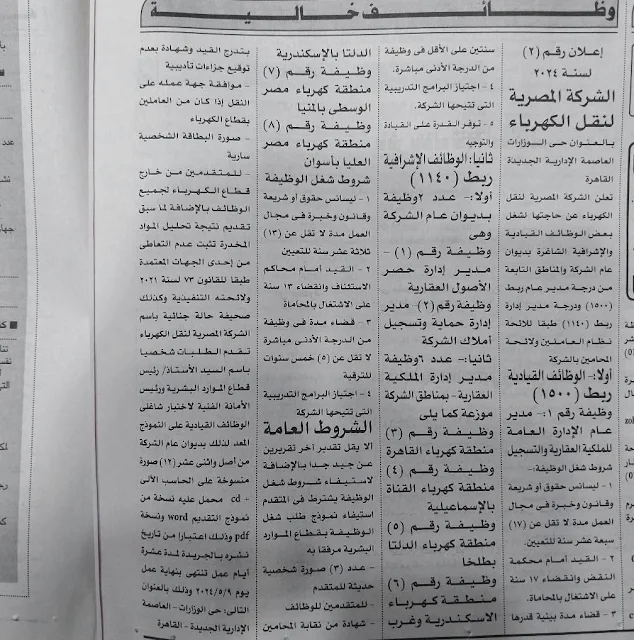 وظائف خالية
إعلان رقم (٢)
لسنة ٢٠٢٤
الشركة المصرية
لنقل الكهرباء
بالعنوان حى الوزارات
العاصمة الإدارية الجديدة
القاهرة
تعلن الشركة المصرية لنقل
الكهرباء عن حاجتها لشغل
بعض الوظائف القيادية
والإشرافية الشاغرة بديوان
عام الشركة والمناطق التابعة
من درجة مدير عام ربط
(١٥٠٠) ودرجة مدير إدارة
ربط (١١٤٠) طبقا للائحة
نظام العاملين ولائحة
المحامين بالشركة
أولا:- الوظائف القيادية
ربط (١٥٠٠)
وظيفة رقم ١:- مدير
عام الإدارة العامة
للملكية العقارية والتسجيل
شروط شغل الوظيفة:-
١- ليسانس حقوق أو شريعة
وقانون وخبرة فى مجال
العمل مدة لا تقل عن (١٧)
سبعة عشر سنة للتعيين.
٢- القيد أمام محكمة
النقض وانقضاء ١٧ سنة
على الاشتغال بالمحاماة.
٣- قضاء مدة بينية قدرها
سنتين على الأقل فى وظيفة
من الدرجة الأدنى مباشرة.
٤- اجتياز البرامج التدريبية
التى تتيحها الشركة.
٥- توفر القدرة على القيادة
والتوجيه
ثانيا: الوظائف الإشرافية
ربط (١١٤٠)
أولا:- عدد ٢ وظيفة
بديوان عام الشركة
وهى
وظيفة رقم (١)-
مدير إدارة حصر
الأصول العقارية
وظيفة رقم (٢)- مدير
إدارة حماية وتسجيل
أملاك الشركة
ثانيا:- عدد ٦ وظيفة
مدير إدارة الملكية
العقارية- بمناطق الشركة
موزعة كما يلى
وظيفة رقم (٣)
منطقة كهرباء القاهرة
وظيفة رقم (٤)
منطقة كهرباء القناة
بالإسماعيلية
وظيفة رقم (٥)
منطقة كهرباء الدلتا
بطلخا
وظيفة رقم (٦)
منطقة كهرباء
الاسكندرية وغرب
الدلتا بالإسكندرية
وظيفة رقم (٧)
منطقة كهرباء مصر
الوسطى بالمنيا
وظيفة رقم (٨)
منطقة كهرباء مصر
العليا بأسوان
شروط شغل الوظيفة
١- ليسانس حقوق أو شريعة
وقانون وخبرة فى مجال
العمل مدة لا تقل عن (١٣)
ثلاثة عشر سنة للتعيين
٢- القيد أمام محاكم
الاستئناف وانقضاء ١٣ سنة
على الاشتغال بالمحاماة
٣- قضاء مدة فى وظيفة
من الدرجة الأدنى مباشرة
لا تقل عن (٥) خمس سنوات
للترقية
٤- اجتياز البرامج التدريبية
التى تتيحها الشركة
الشروط العامة
ألا يقل تقدير آخر تقريرين
عن جيد جدا بالإضافة
لاستيفاء شروط شغل
الوظيفة يشترط فى المتقدم
استيفاء نموذج طلب شغل
الوظيفة بقطاع الموارد
البشرية مرفقا به
- عدد (٣) صورة شخصية
حديثة للمتقدم
- للمتقدمين للوظائف
- شهادة من نقابة المحامين
بتدرج القيد وشهادة بعدم
توقيع جزاءات تأديبية
- موافقة جهة عمله على
النقل إذا كان من العاملين
بقطاع الكهرباء
- صورة البطاقة الشخصية
سارية
- للمتقدمين من خارج
قطاع الكهرباء لجميع
الوظائف بالإضافة لما سبق
تقديم نتيجة تحليل المواد
المخدرة تثبت عدم التعاطى
من إحدى الجهات المعتمدة
طبقا للقانون ٧٣ لسنة ٢٠٢١
ولائحته التنفيذية وكذلك
صحيفة حالة جنائية باسم
الشركة المصرية لنقل الكهرباء
تقدم الطلبات شخصيا
باسم السيد الأستاذ/ رئيس
قطاع الموارد البشرية ورئيس
الأمانة الفنية لاختيار شاغلى
الوظائف القيادية على النموذج
المعد لذلك بديوان عام الشركة
من أصل واثنى عشر (١٢) صورة
منسوخة على الحاسب الآلى
+ cd محمل عليه نسخة من
نموذج التقديم word ونسخة
pdf وذلك اعتبارا من تاريخ
نشره بالجريدة لمدة عشرة
أيام عمل تنتهى بنهاية عمل
يوم ٢٠٢٤/٥/٩ وذلك بالعنوان
التالى: حى الوزارات- العاصمة
الإدارية الجديدة- القاهرة